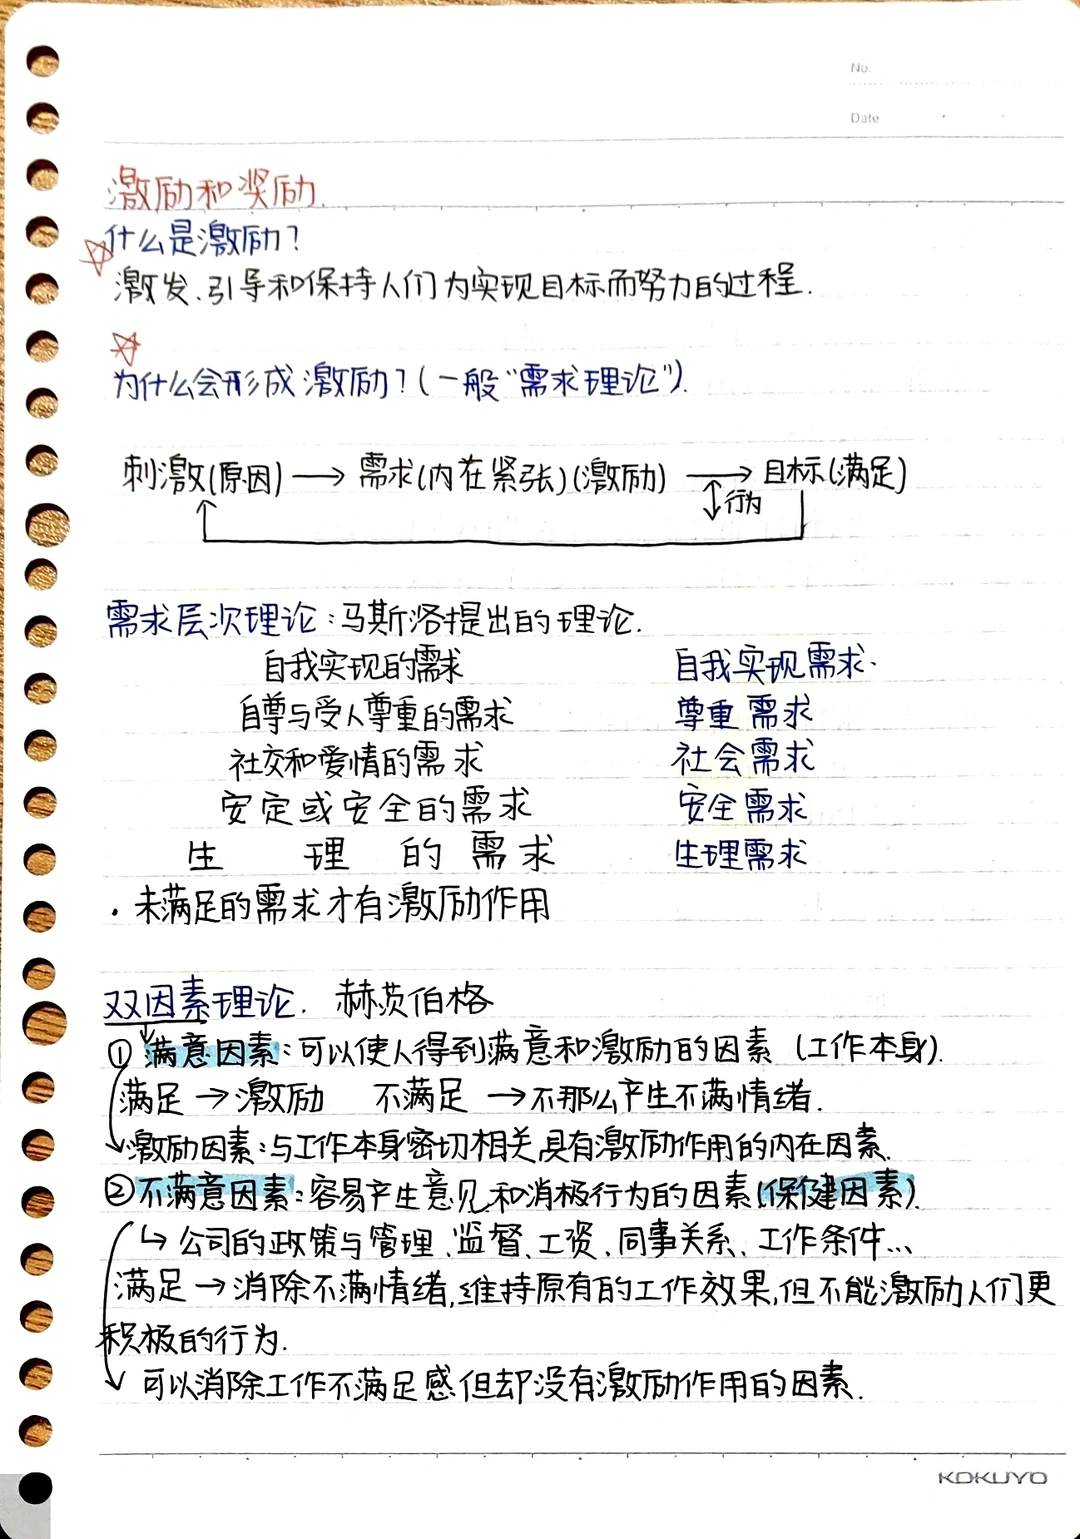 No.
Date
激励和奖励.
什么是激励?
激发、引导和保持人们为实现目标而努力的过程.
为什么会形成激励?(一般“需求理论”).
刺激(原因) → 需求(内在紧张)(激励) → 目标(满足)
行为
需求层次理论:马斯洛提出的理论.
自我实现的需求 自我实现需求.
自尊与受人尊重的需求 尊重需求
社交和爱情的需求 社会需求
安定或安全的需求 安全需求
生理的需求 生理需求
·未满足的需求才有激励作用
双因素理论. 赫茨伯格
①满意因素:可以使人得到满意和激励的因素 (工作本身).
满足→激励 不满足→不那么产生不满情绪.
激励因素:与工作本身密切相关,具有激励作用的内在因素.
②不满意因素:容易产生意见和消极行为的因素(保健因素).
↳公司的政策与管理、监督、工资、同事关系、工作条件...
满足→消除不满情绪,维持原有的工作效果,但不能激励人们更
积极的行为.
可以消除工作不满足感但却没有激励作用的因素.
KOKUYO